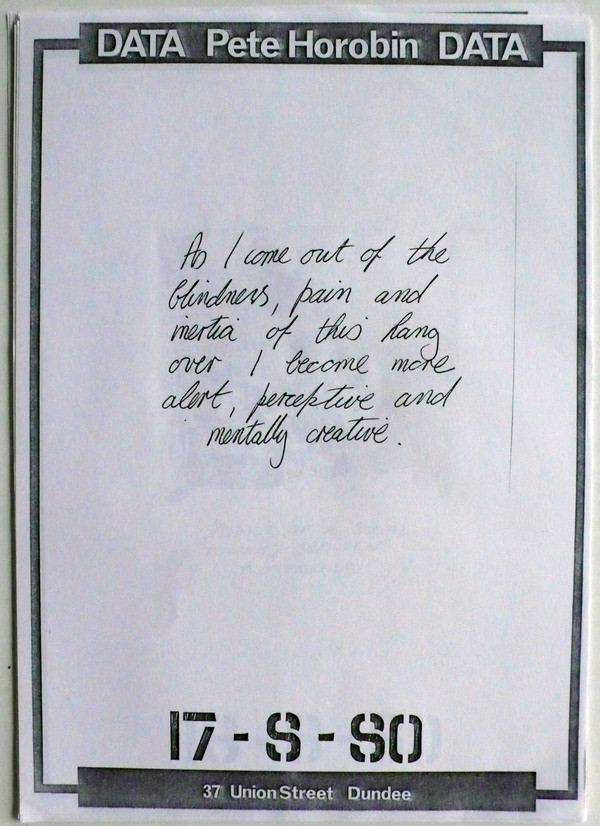 DATA Pete Horobin DATA
As I come out of the
blindness, pain and
inertia of this hang
over I become more
alert, perceptive and
mentally creative.
17-8-80
37 Union Street Dundee